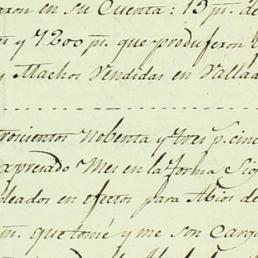 aron en su Cuenta: 13 p.s de
y 7200 p.s que produjeron
y Machos Vendidas en Vallad
trosientos Nobenta y tres p. cinc
expresado Mes en la forma Sig
pleados en efectos para Abios de
p.s que tomé y me son Carg